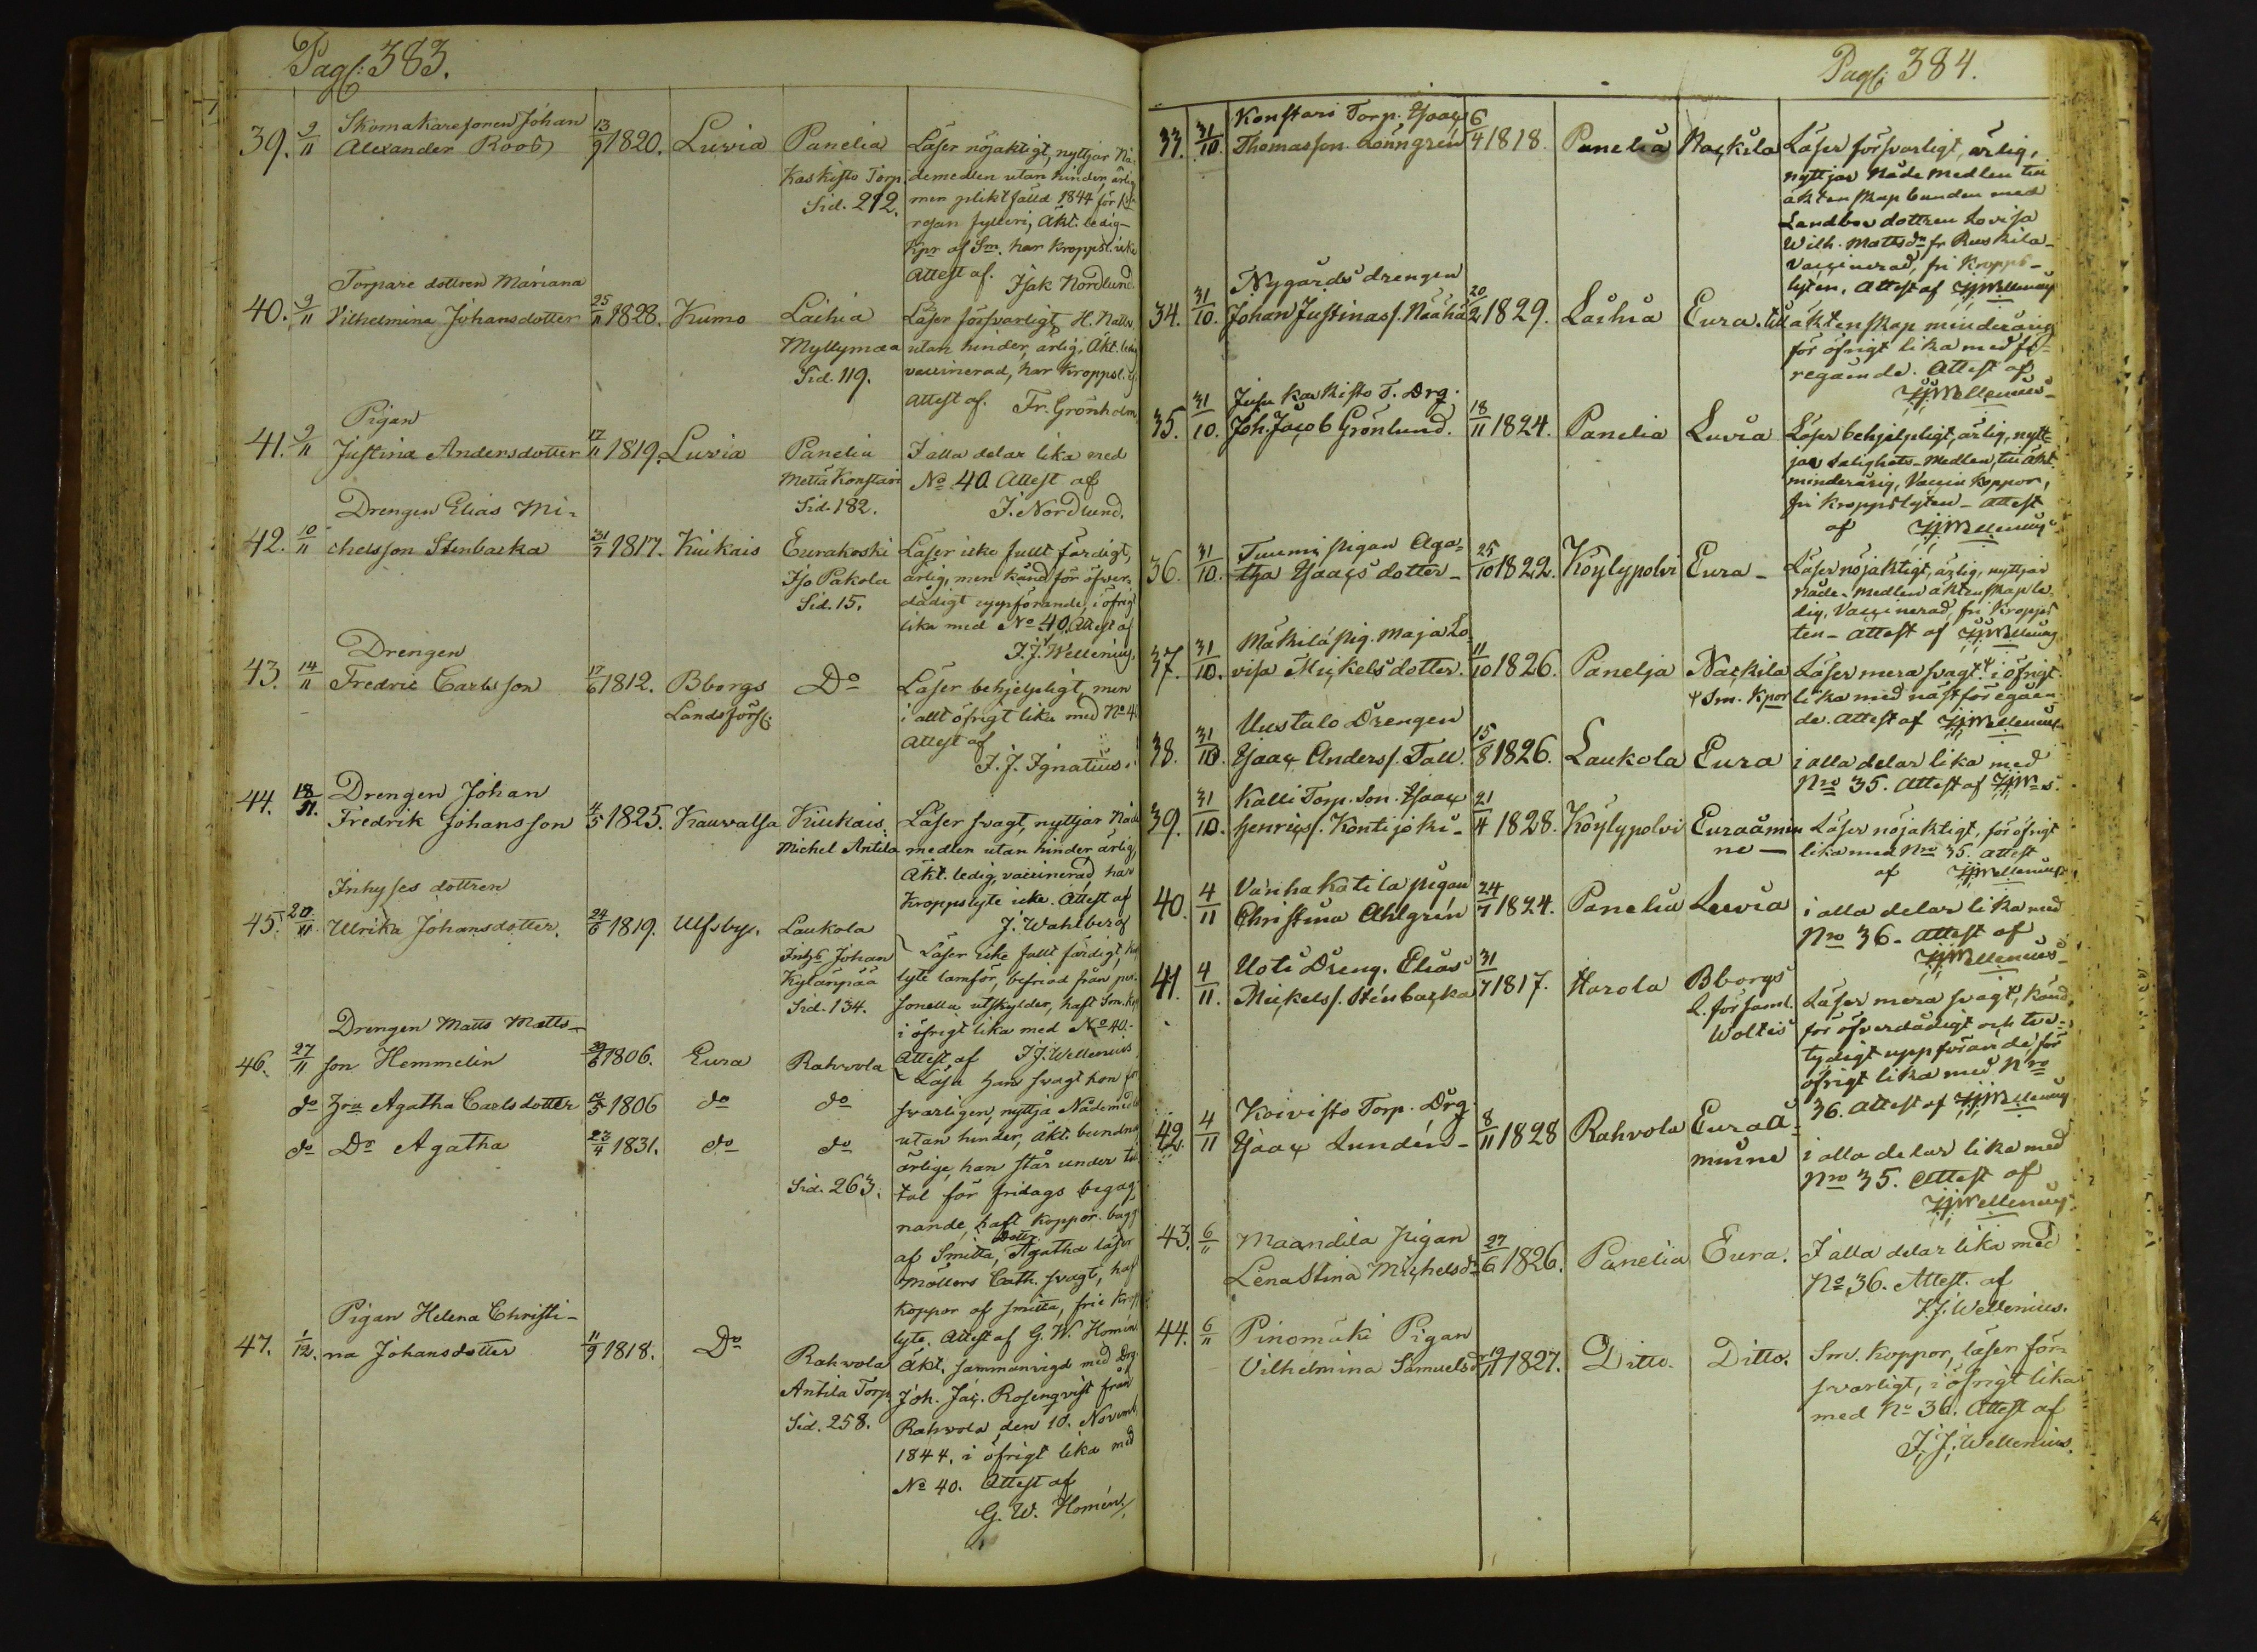 Pag: 383.
39. 9/11 Skomakaresonen Johan
Alexander Roos 13/9 1820. Luvia Panelia
Kaskisto Torp.
Sid. 212.
Läser nöjaktigt, nyttjar Nå-
demedlen utan hinder, ärlig
men pliktfälld 1844 för
resan fylleri, Äkt. ledig
kpr af Sm. har kroppsl. icke
Attest af. Isak Nordlund.
40. 9/11 Torpare dottren Mariana
Vilhelmina Johansdotter 25/11 1828. Kumo Laihia
Myllymaa
Sid. 119.
Läser försvarligt, H. Nattv.
utan hinder, ärlig, Äkt. ledig
vaccinerad, har kroppsl. ej
Attest af. Fr. Grönholm
41. 9/11 Pigan
Justina Andersdotter 17/11 1819. Luvia Panelia
Metta Konstari
Sid. 182.
I alla delar lika med
No 40. Attest af
I. Nordlund.
42. 10/11 Drengen Elias Mi-
chelsson Stenbacka 31/7 1817. Kiukais Eurakoski
Iso Pakola
Sid. 15.
Läser icke fullt färdigt,
ärlig, men känd för öfver-
dådigt uppförande, i öfrigt
lika med No 40. Attest af
J. J. Wellenius.
43. 14/11 Drengen
Fredric Carlsson 17/6 1812. Bborgs
Landsförs: Do
Läser behjelpligt, men
i allt öfrigt lika med No 4
Attest af
J. J. Ignatius.
44. 18/11. Drengen Johan
Fredrik Johansson 4/5 1825. Kauvatsa Kiukais.
Michel Antila
Läser svagt, nyttjar Nåde
medlen utan hinder, ärlig,
Äkt. ledig, vaccinerad har
Kroppslyte icke. Attest af
J. Wahlberg
45. 20/11 Inhyses dottren
Ulrika Johansdotter. 24/6 1819. Ulfsby. Laukola
Inhs Johan
Kylänpää
Sid. 134.
Läser icke fullt färdigt,
lyte lamför, befriad från per-
sonella utskylder, haft Sm. kp
i öfrigt lika med No 40.
Attest af J J. Wellenius
46. 27/11 Drengen Matts Matts-
son Hemmelin 29/6 1806. Eura Rahvola
do Hru Agatha Carlsdotter 10/5 1806 do do
do Do Agatha 23/4 1831. do do
Sid. 263.
Läsa han svagt hon för
svarligen, nyttja Nådemedlen
utan hinder, Äkt. bundne
ärlige, han står under til
tal för fridags begag-
nande, haft koppor bägge
af Smitta, Dottr. Agatha läser
Möllers Cath. svagt, haft
koppor af smitta, frie Kropps
lyte. Attest af G. W. Homén
47. 1/12. Pigan Helena Christi-
na Johansdotter 11/9 1818. Do Rahvola
Antila Torp.
Sid. 258.
Äkt. sammanvigd med Drg.
Joh. Jac. Rosengvist från
Rahvola, den 10. Novemb.
1844, i öfrigt lika med
No 40. Attest af
G. W. Homén.
Pag: 384.
33. 31/10. Konstari Torp. Isaac
Thomasson Lönngren 6/4 1818. Panelia Nackila
Läser försvarligt, ärlig,
nyttjar Nåde Medlen till
äktenskap bunden med
Landbo dottren Lovisa
Wilh. Mattsdr fr Ruskila
Vaccinerad, fri kropps-
lyten. Attest af JJWellenius
34. 31/10. Nygårds drengen
Johan Justinas. Näähä 20/2 1829. Laihia Eura.
till äktenskap minderårig
för öfrigt lika med fö-
regående. Attest af
JJWellenius
35. 31/10. Juse Kaskisto T. Drg.
Joh. Jacob Grönlund. 18/11 1824. Panelia Luvia
Läser behjelpligt, ärlig, nytt-
jar Salighets-Medlen, till äkt.
minderårig, Vaccin koppor,
fri kroppslyten - Attest
af JJWellenius
36. 31/10. Tuumi pigan Aga-
tha Isaacsdotter 25/10 1822. Köylypolvi Eura -
Läser nöjaktigt, ärlig, nyttjar
Nåde-medlen äktenskap le-
dig, Vaccinerad, fri kropps
ten - attest af JJWellenius
37. 31/10. Mäkilä pig. Maja Lo-
visa Mickelsdotter. 11/10 1826. Panelja Nackila
+ Sm. kpor
Läser mera svagt + i öfrigt
lika med nästföregåen-
de. Attest af JJWellenius
38. 31/10. Uustalo Drengen
Isaac Anders s. Tall. 15/8 1826. Laukola Eura
i alla delar lika med
Nro 35. Attest af JJWs.
39. 31/10. Kalli Torp. Son. Isaac
Henrics s. Kontijoki 21/4 1828. Köylypolvi Euraåmin
ne —
Läser nöjaktigt, för öfrigt
lika med Nro 35. Attest
af JJWellenius
40. 4/11 Vanha Katila pigan
Christina Ahlgrén 24/7 1824. Panelia Luvia
i alla delar lika med
Nro 36. Attest af
JJWellenius
41. 4/11. Uoti Dreng. Elias
Mickels s. Stenbacka 31/7 1817. Harola Bborgs
L. församl.
Woltis
Läser mera svagt, känd
för öfverdådigt och tve-
tydigt uppförande, för
öfrigt lika med Nro
36. Attest af JJWellenius
42. 4/11 Koivisto Torp. Drg.
Isaac Lundén - 8/11 1828 Rahvola Euraå-
minne
i alla delar lika med
Nro 35. Attest af
JJWellenius
43. 6/11 Maandila pigan
Lena Stina Michelsdr 27/6 1826. Panelia Eura.
I alla delar lika med
No 36. Attest. af
J. J. Wellenius.
44. 6/11 Pinomäki Pigan
Vilhelmina Samuelsdr 19/11 1827. Ditto. Ditto.
Sm. koppor, läser för-
svarligt, i öfrigt lika
med No 36. Attest af
J. J. Wellenius.